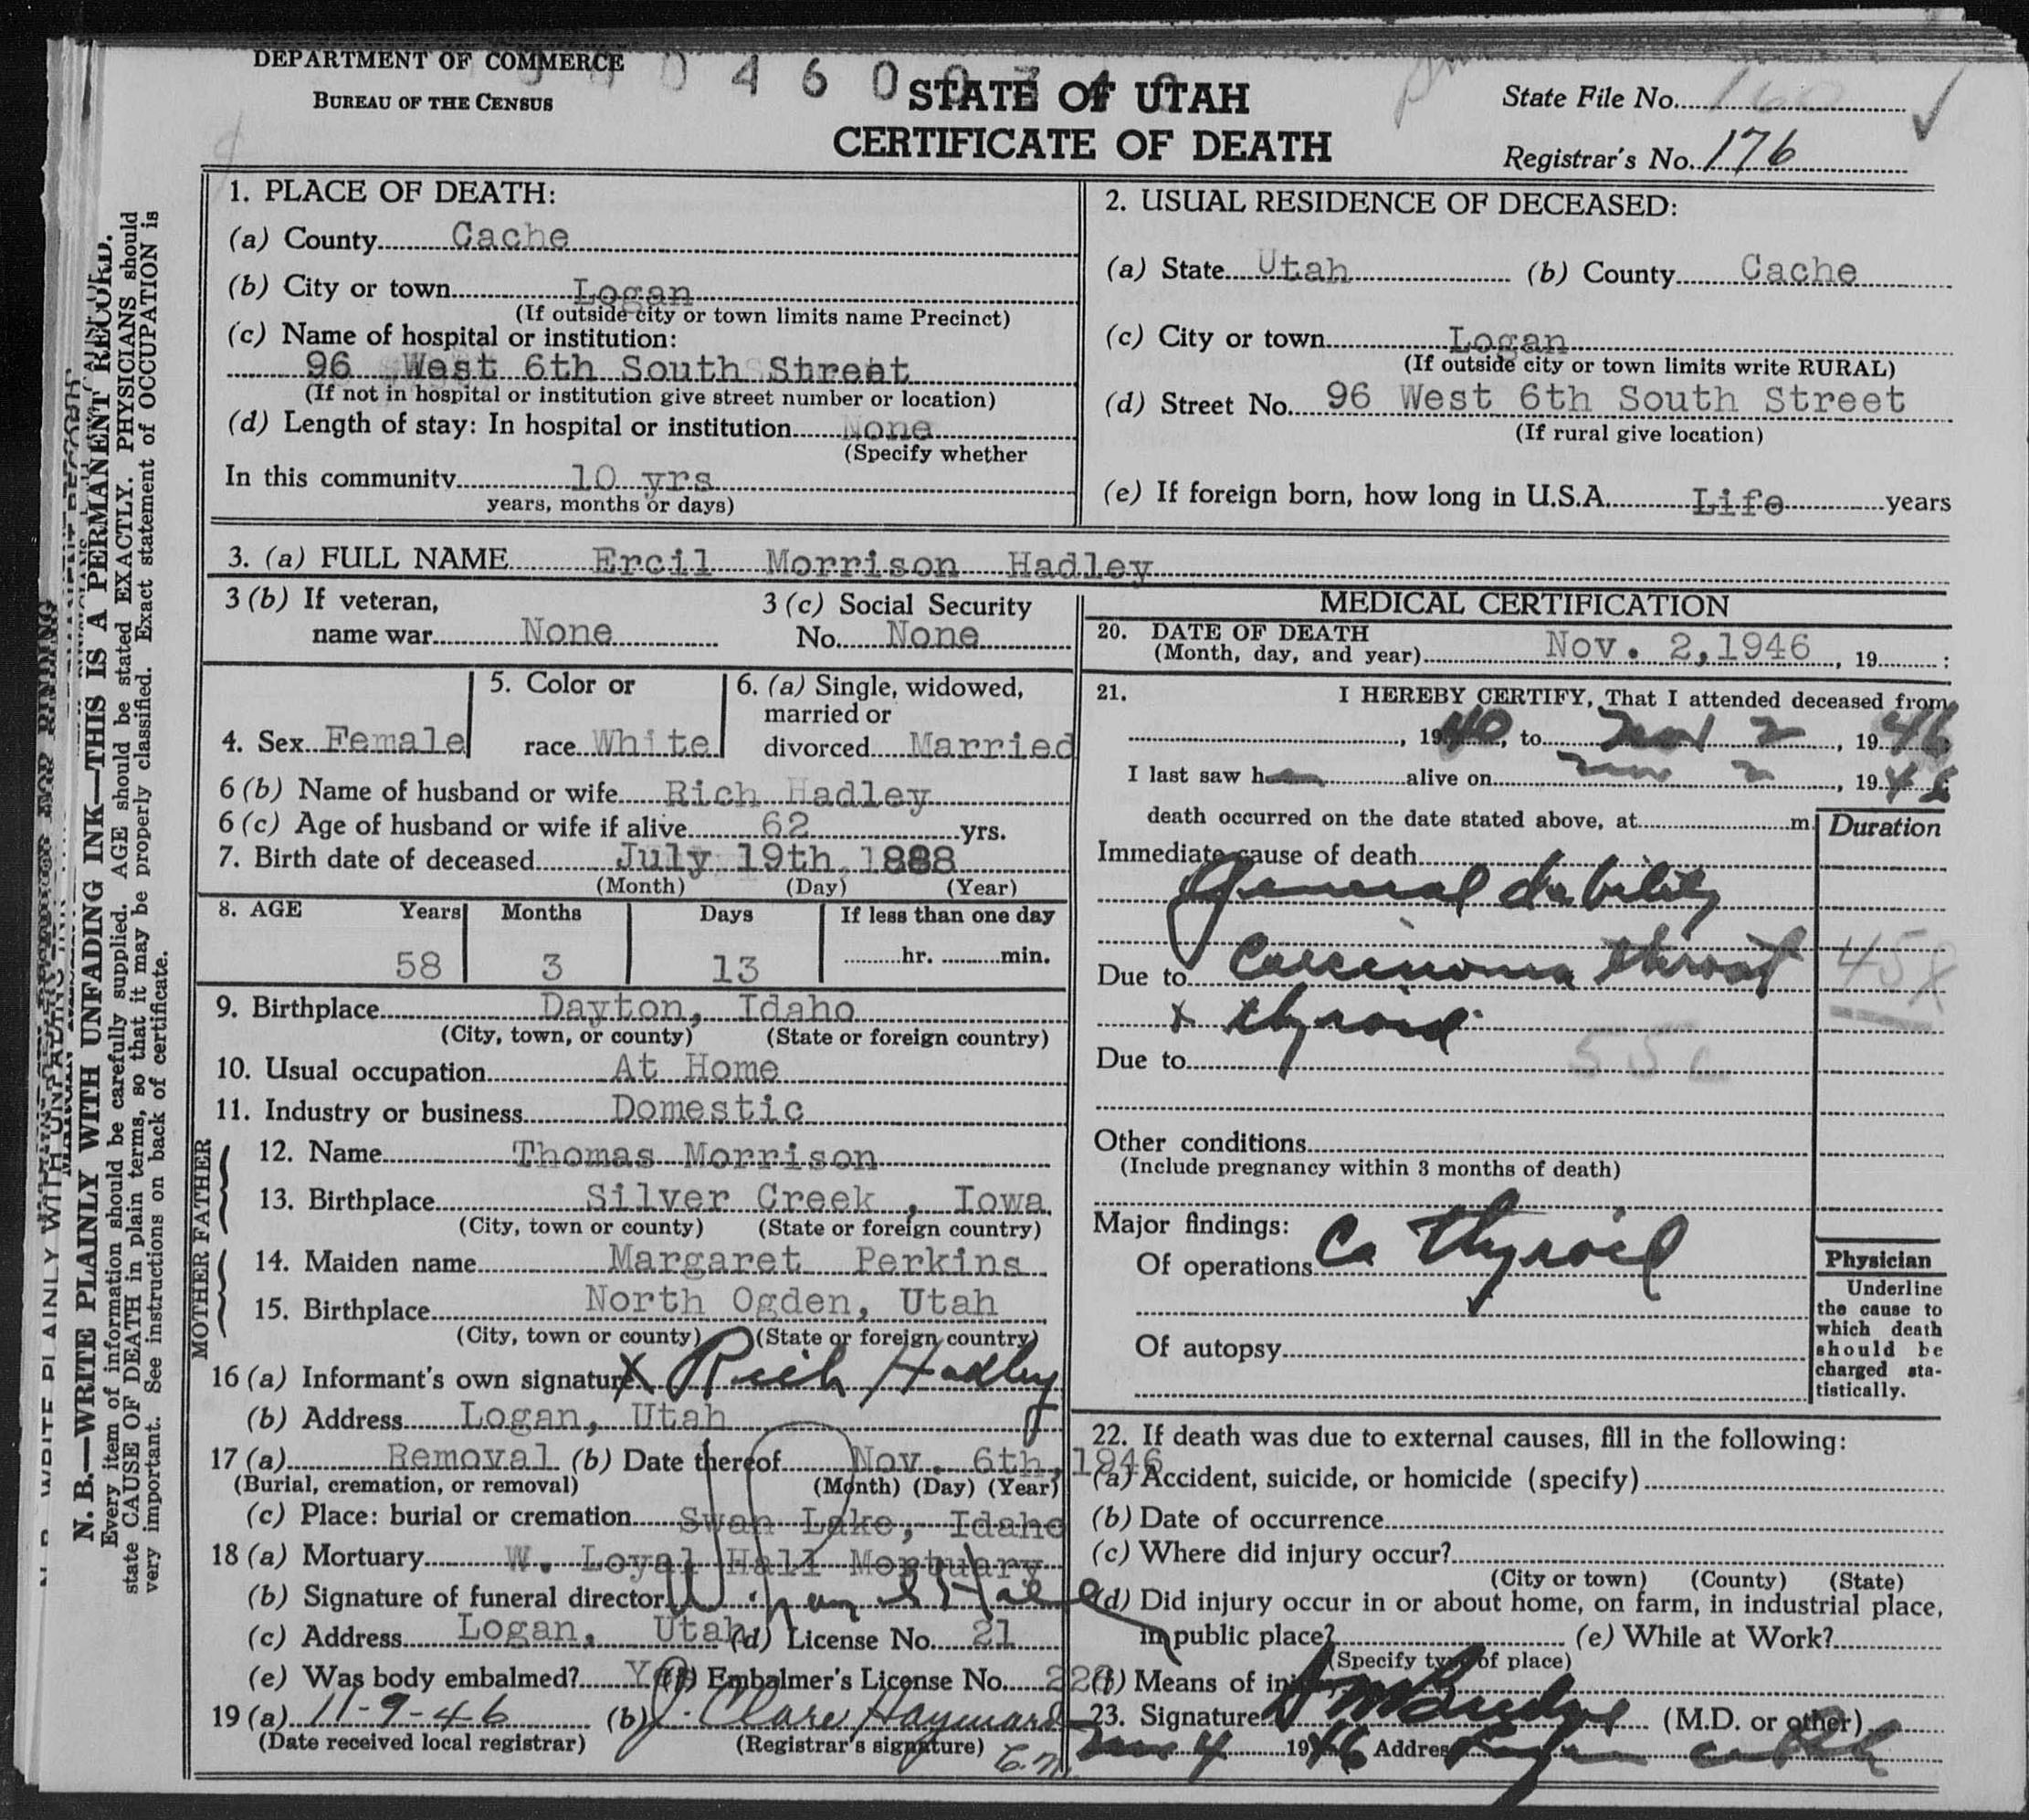 DEPARTMENT OF COMMERCE
BUREAU OF THE CENSUS
STATE OF UTAH
CERTIFICATE OF DEATH
State File No. 160
Registrar's No. 176
N. B.—WRITE PLAINLY WITH UNFADING INK—THIS IS A PERMANENT RECORD.
Every item of information should be carefully supplied. AGE should be stated EXACTLY. PHYSICIANS should
state CAUSE OF DEATH in plain terms, so that it may be properly classified. Exact statement of OCCUPATION is
very important. See instructions on back of certificate.
1. PLACE OF DEATH:
(a) County Cache
(b) City or town Logan
(If outside city or town limits name Precinct)
(c) Name of hospital or institution:
96 West 6th South Street
(If not in hospital or institution give street number or location)
(d) Length of stay: In hospital or institution None
(Specify whether
In this community 10 yrs
years, months or days)
2. USUAL RESIDENCE OF DECEASED:
(a) State Utah (b) County Cache
(c) City or town Logan
(If outside city or town limits write RURAL)
(d) Street No. 96 West 6th South Street
(If rural give location)
(e) If foreign born, how long in U.S.A. Life years
3. (a) FULL NAME Ercil Morrison Hadley
3 (b) If veteran,
name war None
3 (c) Social Security
No. None
4. Sex Female
5. Color or
race White
6. (a) Single, widowed,
married or
divorced Married
6 (b) Name of husband or wife Rich Hadley
6 (c) Age of husband or wife if alive 62 yrs.
7. Birth date of deceased July 19th, 1888
(Month) (Day) (Year)
8. AGE Years Months Days If less than one day
58 3 13 hr. min.
9. Birthplace Dayton, Idaho
(City, town, or county) (State or foreign country)
10. Usual occupation At Home
11. Industry or business Domestic
FATHER
12. Name Thomas Morrison
13. Birthplace Silver Creek , Iowa
(City, town or county) (State or foreign country)
MOTHER
14. Maiden name Margaret Perkins
15. Birthplace North Ogden, Utah
(City, town or county) (State or foreign country)
16 (a) Informant's own signature X Rich Hadley
(b) Address Logan, Utah
17 (a) Removal (b) Date thereof Nov. 6th, 1946
(Burial, cremation, or removal) (Month) (Day) (Year)
(c) Place: burial or cremation Swan Lake, Idaho
18 (a) Mortuary W. Loyal Hall Mortuary
(b) Signature of funeral director W. Loyal Hall
(c) Address Logan, Utah (d) License No. 21
(e) Was body embalmed? Yes (f) Embalmer's License No.
19 (a) 11-9-46 (b) J. Clare Hayward
(Date received local registrar) (Registrar's signature)
MEDICAL CERTIFICATION
20. DATE OF DEATH
(Month, day, and year) Nov. 2,1946, 19 :
21. I HEREBY CERTIFY, That I attended deceased from
, 1940, to Nov 2, 1946
I last saw her alive on Nov 2, 1946
death occurred on the date stated above, at m.
Duration
Immediate cause of death
General debility
Due to Carcinoma throat
+ thyroid
458
Due to 55c
Other conditions
(Include pregnancy within 3 months of death)
Major findings:
Of operations Ca thyroid
Of autopsy
Physician
Underline
the cause to
which death
should be
charged sta-
tistically.
22. If death was due to external causes, fill in the following:
(a) Accident, suicide, or homicide (specify)
(b) Date of occurrence
(c) Where did injury occur?
(City or town) (County) (State)
(d) Did injury occur in or about home, on farm, in industrial place,
in public place? (e) While at Work?
(Specify type of place)
(f) Means of injury
23. Signature (M.D. or other)
Nov 4 1946 Address Logan Utah